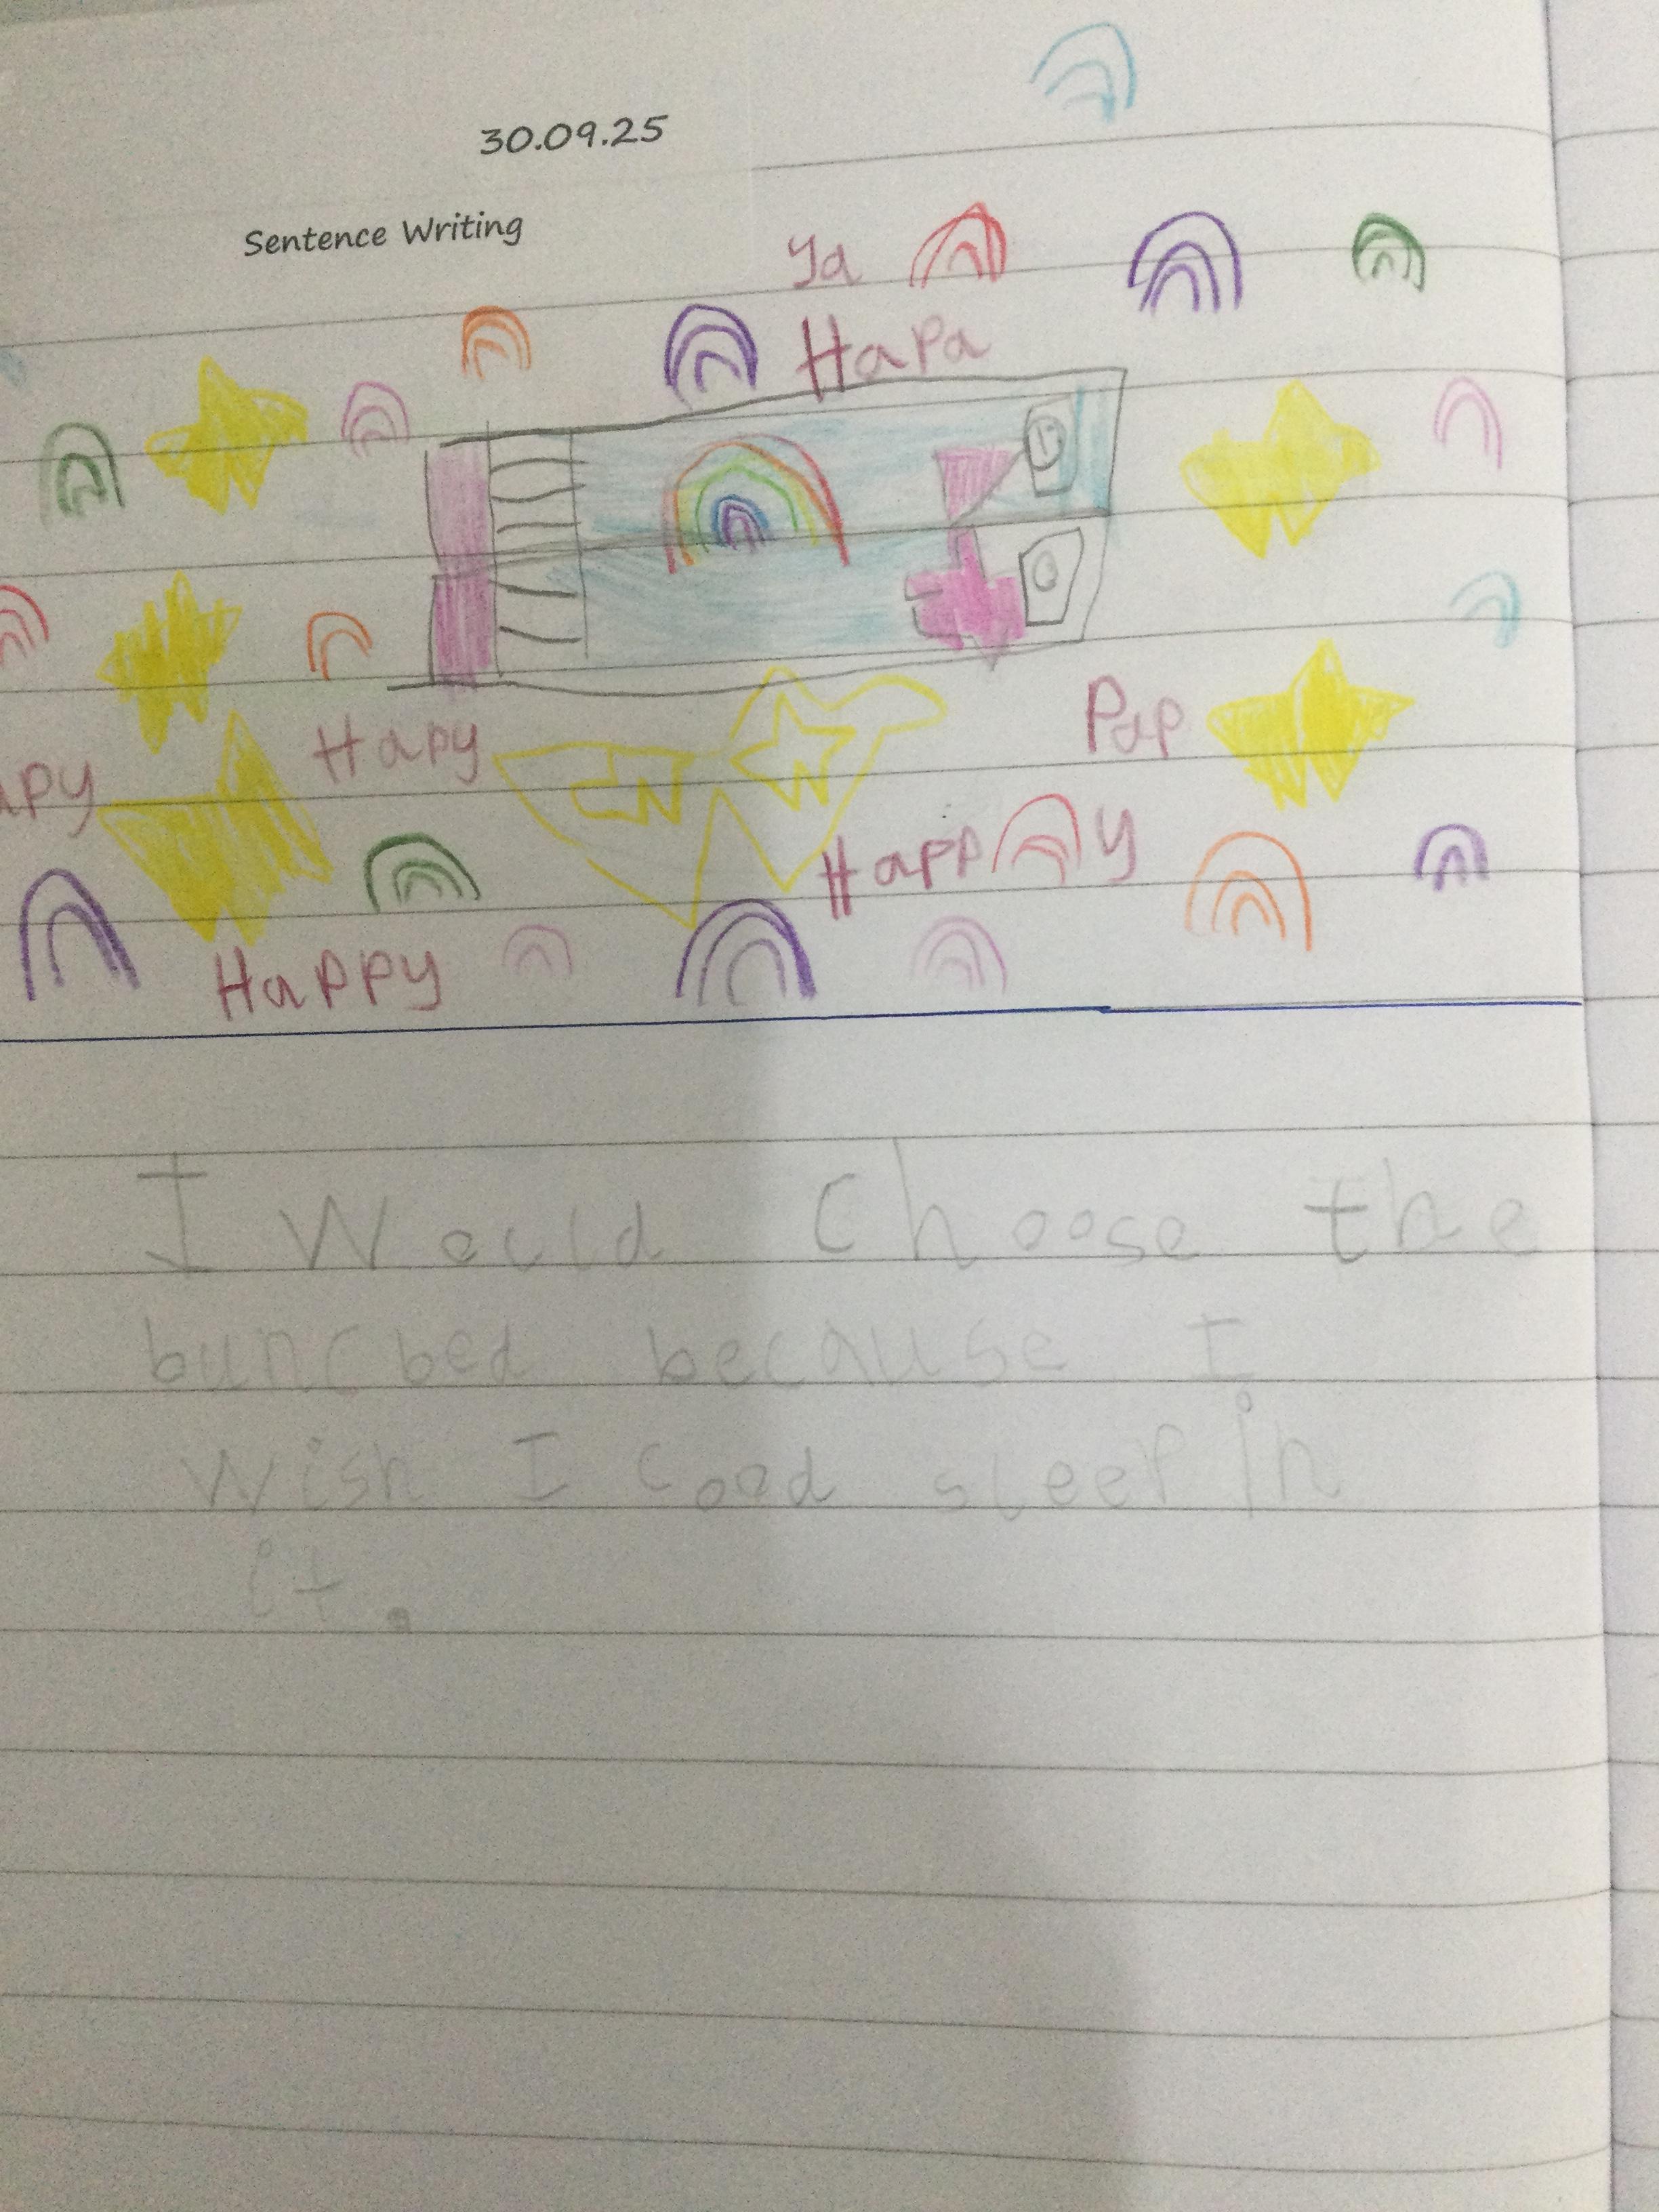 30.09.25
Sentence Writing
Ya
Hapa
Hapy
Pap
apy
Happy
Happy
I Would Choose the
buncbed because I
wish I cood sleep in
it.